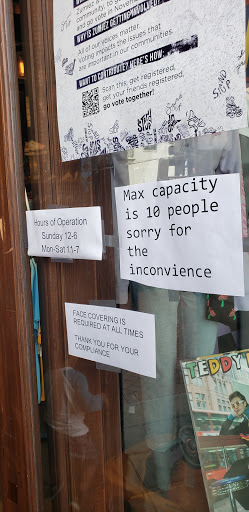 community. to g
and go vote in Novembe
WHY IS ZUMIEZ GETTING INVOLVED?
All of our voices matter.
Voting impacts the issues that
are important in our communities.
WANT TO CONTRIBUTE? HERE'S HOW:
Scan this, get registered,
get your friends registered,
go vote together!
STAND UP
Max capacity
is 10 people
sorry for
the
inconvience
Hours of Operation
Sunday 12-6
Mon-Sat 11-7
FACE COVERING IS
REQUIRED AT ALL TIMES
THANK YOU FOR YOUR
COMPLIANCE
TEDDY